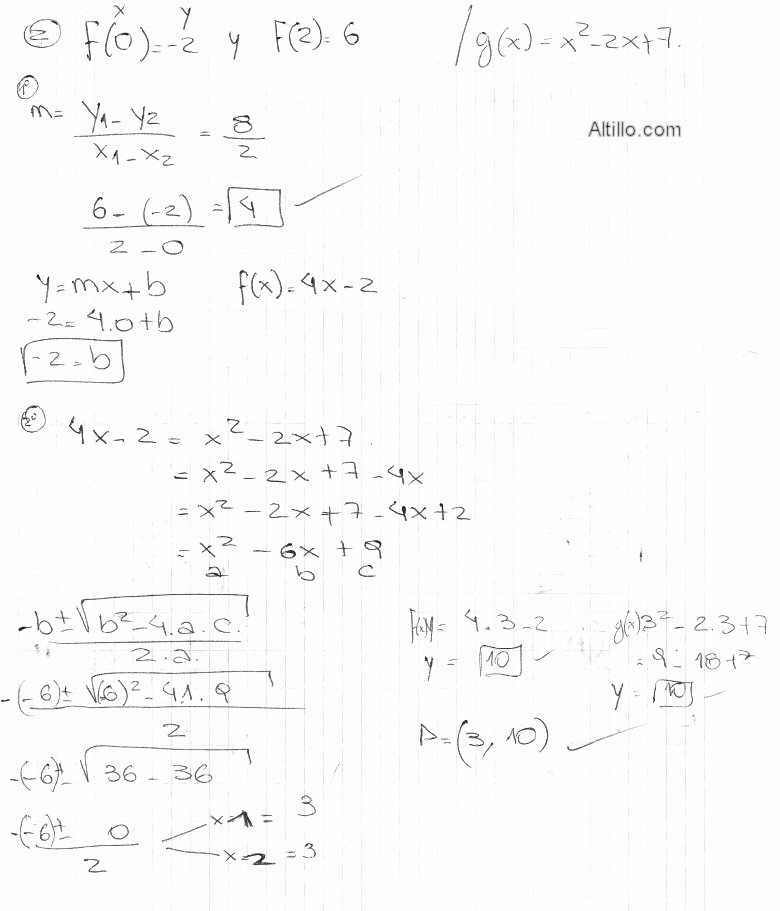 x y
② F(0)=-2 y F(2)=6 / g(x)=x²-2x+7.
Altillo.com
1º
m= y1-y2 / x1-x2 = 8/2
6-(-2) / 2-0 = 4
y=mx+b f(x)=4x-2
-2=4.0+b
-2=b
2º
4x-2 = x²-2x+7.
= x²-2x+7-4x
= x²-2x+7-4x+2
= x² - 6x + 9
a b c
-b±√b²-4.a.c. / 2.a.
-(-6)±√(-6)²-4.1.9 / 2
-(-6)±√36-36
-(-6)± 0 / 2
x1 = 3
x2 = 3
F(x)= 4.3-2
y = 10
g(x)=3²-2.3+7
y = 10
P=(3, 10)